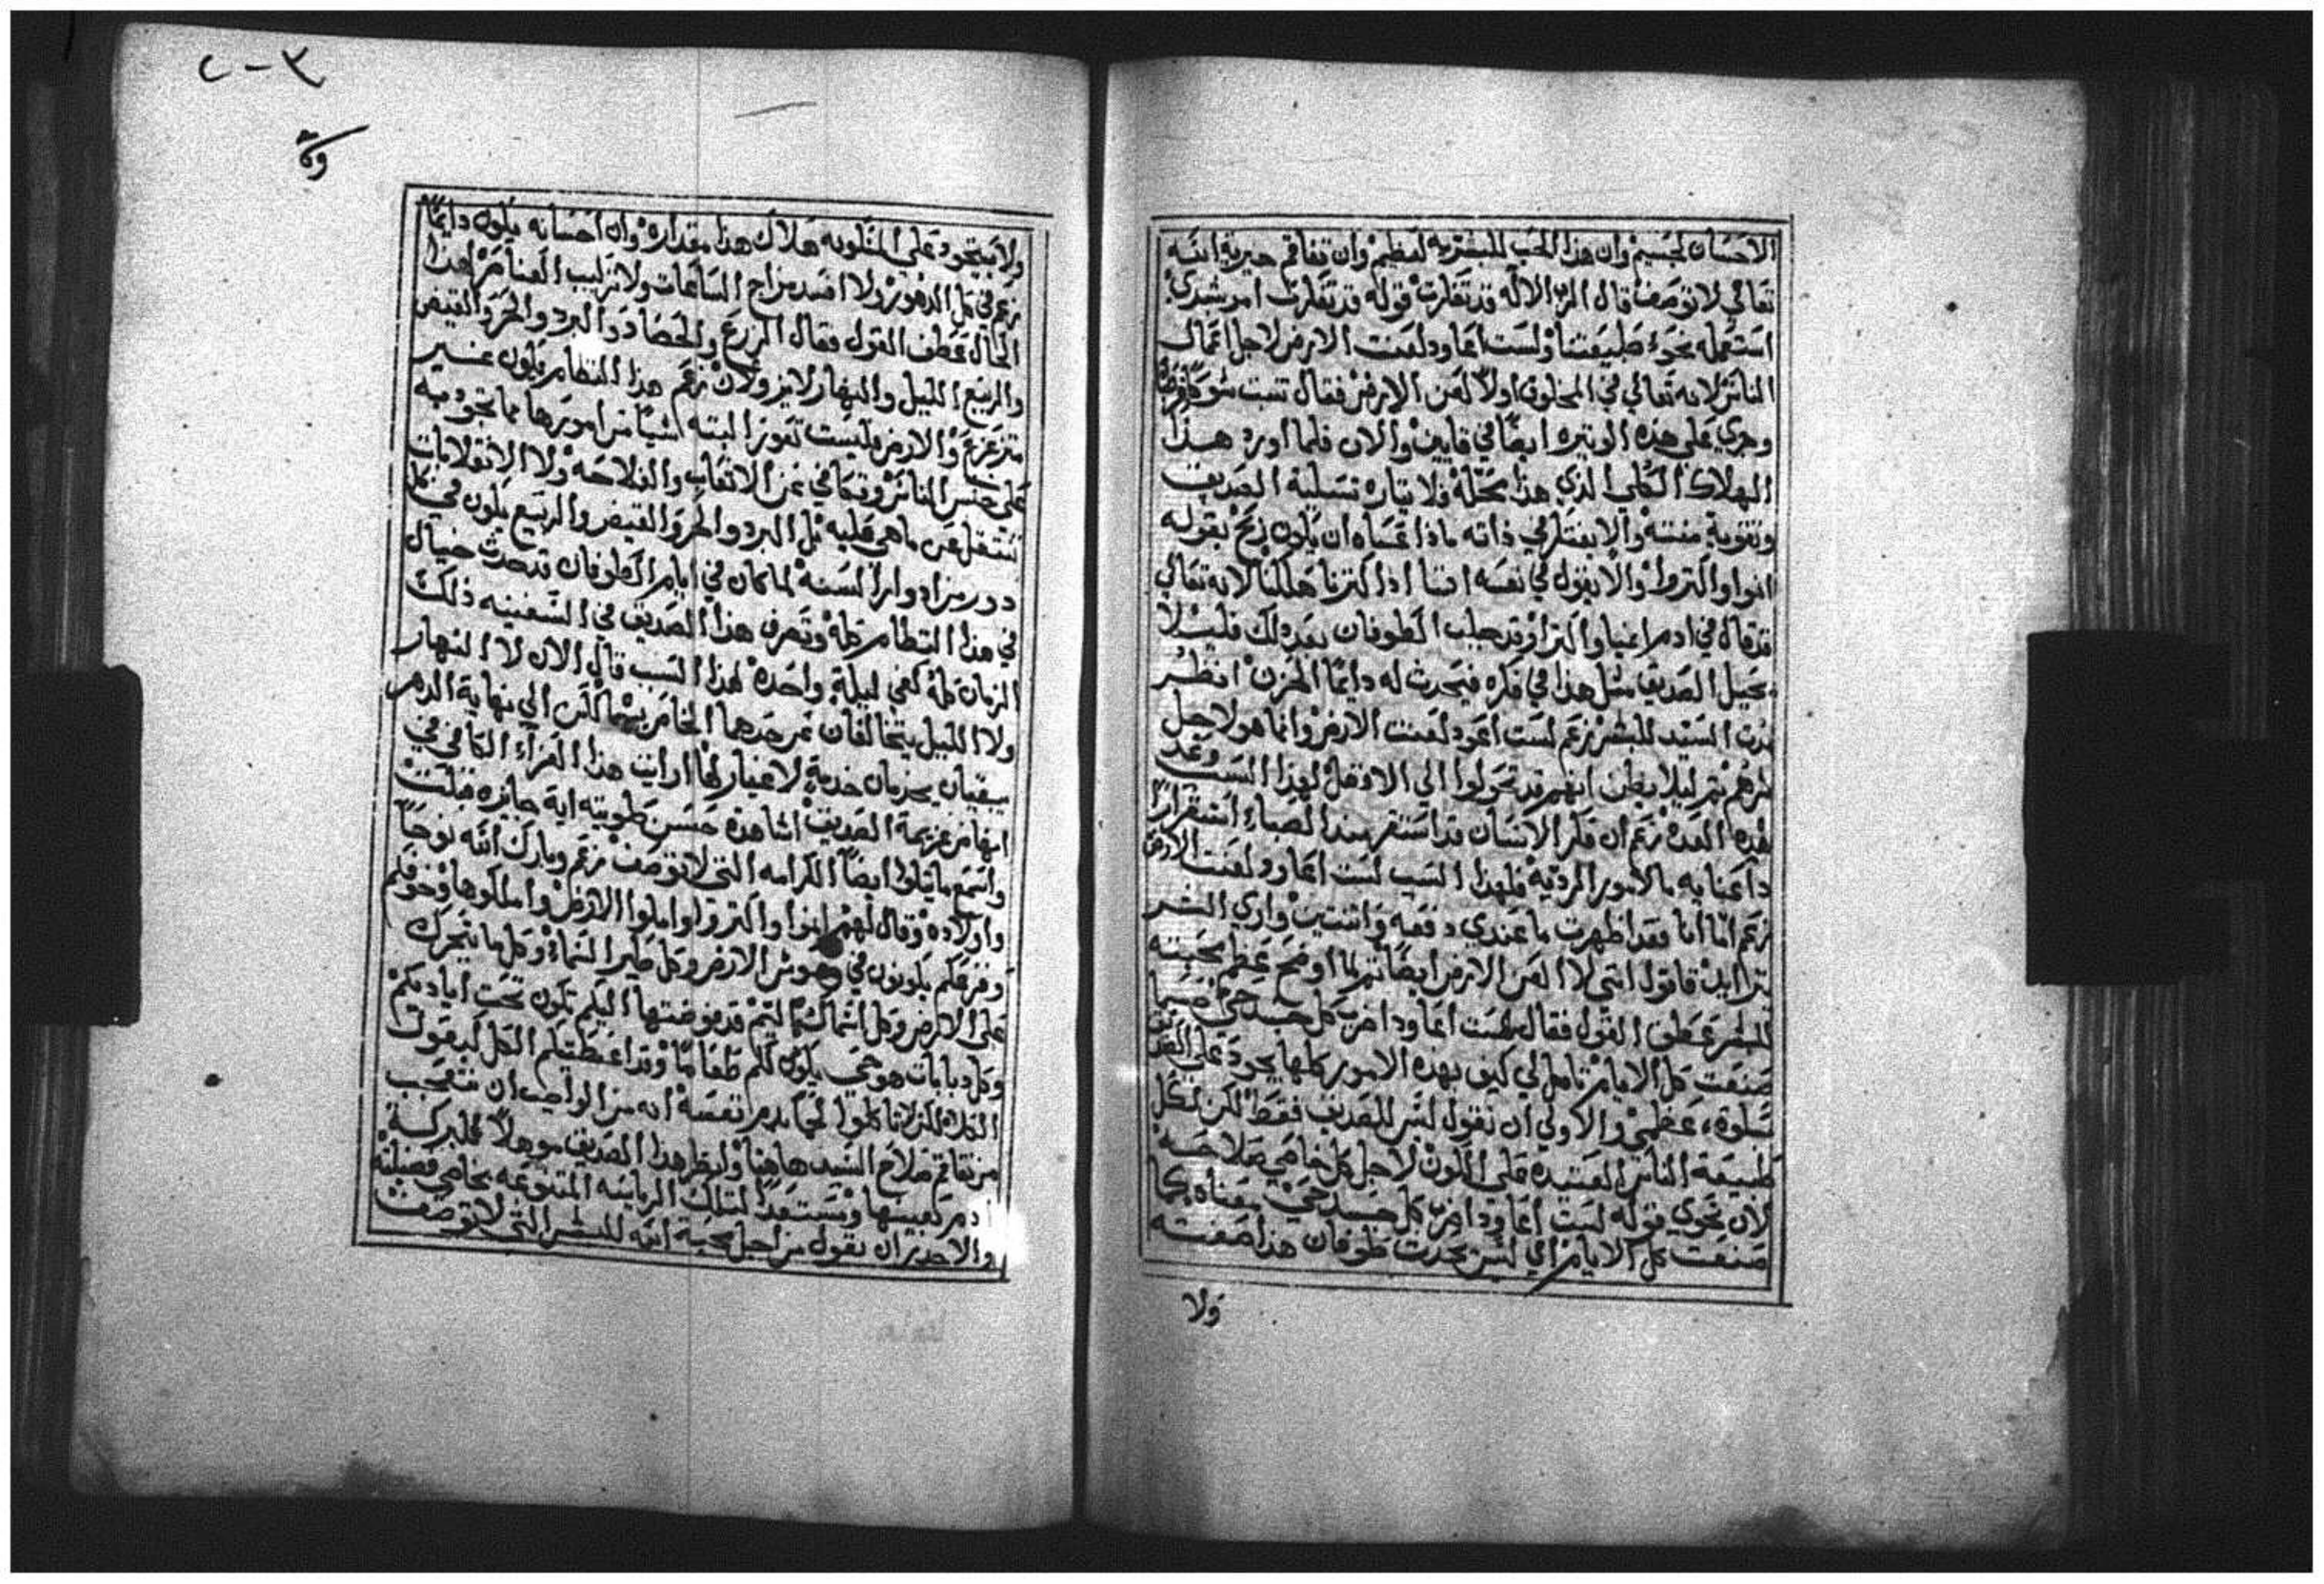 الاحسان لجسيم وان هذا الحب للبشريه لعظيم وان تفاقم خيرية الله
تعالي لا توصف قال الرب الاله قد تفكرت قوله قد تفكرت امر بشدي
استعمله نحو طبيعتنا ولست اعاود لعنت الارض لاجل اعمال
الناس لانه تعالي في المخلوق اولا لعن الارض فقال تنبت شوكا
وجري علي هذه الوتيره ايضا في قايين والان فلما اورد هذا
الهلاك الكلي الذي هذا محله فلاتيان تسلية الصديق
وتقوية منته والا يفتكر في ذاته ماذا عساه ان يكون ربح بقوله
انموا واكثروا والا يقول في نفسه اننا اذا كثرنا هلكنا لانه تعالي
قد قال في ادم انميا واكثرا وقد جلب الطوفان بعد ذلك فليلا
يخيل الصديق مثل هذا في فكره فيحدث له دايما الحزن انظر
السيد للبشر زعم لست اعود لعنت الارض وانما هو لاجل
شرهم ثم ليلا يظن انهم قد تحولوا الي الافضل لهذا السبب وعد
هذه العده زعم ان فكر الانسان قد استقر منذ الصباء استقرارا
ذا عنايه بالامور الرديه فلهذا السبب لست اعاود لعنت الارض
زعم اما انا فقد اظهرت ما عندي دفعه واثنتين واري الشر
يتزايد فاقول انني لا العن الارض ايضا ثم لما اوضح عظم محبته
للبشر عطف القول فقال لست اعاود اضرب كل جسد حي حسبما
صنعت كل الايام تامل لي كيف بهذه الامور كلها يجود علي الصديق
بسلوة عظمي والاولي ان نقول ليس للصديق فقط لكن لكل
طبيعة الناس العتيده علي الكون لاجل كل خاصي صلاحه
لان نحوي قوله لست اعاود اضرب كل جسد حي بمعناه كما
صنعت كل الايام اي ليس يحدث طوفان هذا صفته
ولا
ولا يجود علي المسكونه هلاك هذا مقداره وان احسانه يكون دايما
زعم في كل الدهور ولا افسد مزاج الساعات ولا تركيب العناصر لهذا
الحال عطف القول فقال الزرع والحصاد والبرد والحر والقيض
والربيع الليل والنهار لا يزولان زعم هذا النظام يكون غير
متزعزع والارض ليست تعوز البته شيا من امورها مما تجود به
علي جنس الناس وتكافي عن الاتعاب والفلاحه ولا الانقلابات
تنتقل عن ماهي عليه بل البرد والحر والقيض والربيع يكون في كل
دور من ادوار السنه لما كان في ايام الطوفان قد حدث خيال
في هذا النظام كله وتصرف هذا الصديق في السفينه ذلك
الزمان كله كفي ليلة واحده لهذا السبب قال الان لا النهار
ولا الليل يتخالفان عن حدهما الخاص بهما لكن الي نهاية الدهر
يبقيان يخدمان خدمة لا غيار لها ارايت هذا العزاء الكافي في
انهاض عزيمة الصديق اشاهدة حسن طويته اية جايزه قبلت
واسمع ما يتلوا ايضا الكرامه التي لا توصف زعم وبارك الله نوحا
واولاده وقال لهم انموا واكثروا واملوا الارض واملكوها وخوفكم
وفزعكم يكونون في وحوش الارض وكل طير السماء وكل ما يتحرك
علي الارض وكل اسماك اليم قد فوضتها اليكم تكون تحت اياديكم
وكل دبابات هو حي يكون لكم طعاما وقد اعطيتكم الكل كبقول
الكلاء لكن لا تاكلوا لحما بدم نفسه انه من الواجب ان نتعجب
من تفاقم صلاح السيد هاهنا ولنظر هذا الصديق موهلا للبركة
ادم كعينها ومستعدا لتلك الرياسه المنتزعه بخاصي فضيلته
والاجدر ان نقول من اجل محبة الله للبشر التي لا توصف